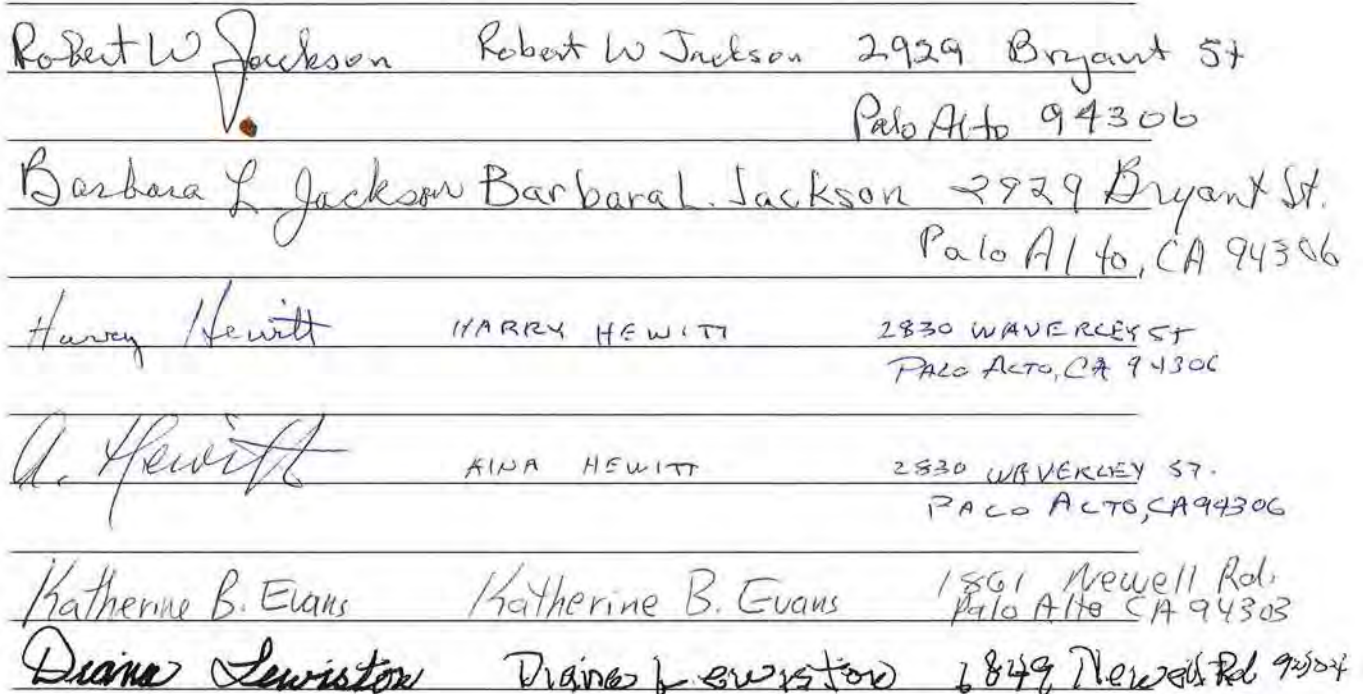 Robert W Jackson Robert W Jackson 2929 Bryant St
Palo Alto 94306
Barbara L Jackson Barbara L. Jackson 2929 Bryant St.
Palo Alto, CA 94306
Harry Hewitt HARRY HEWITT 2830 WAVERLEY ST
PALO ALTO, CA 94306
A. Hewitt AINA HEWITT 2830 WAVERLEY ST.
PALO ALTO, CA 94306
Katherine B. Evans Katherine B. Evans 1861 Newell Rd.
Palo Alto CA 94303
Diana Lewiston Diana Lewiston 1849 Newell Rd